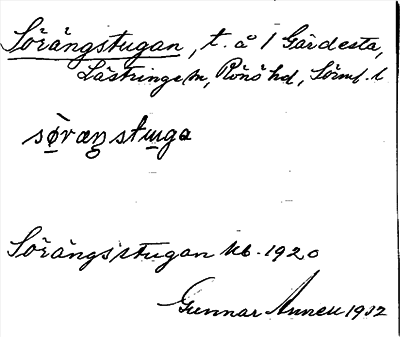 Sörängstugan, t. å 1 Gärdesta,
Lästringe sn, Rönö hd, Sörml. l
søræŋstuga
Sörängsstugan kb. 1920
Gunnar 1932